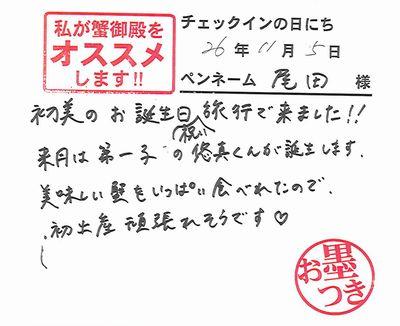 私が蟹御殿を
オススメ
します!!
チェックインの日にち
26年11月5日
ペンネーム 尾田 様
初美のお誕生日祝い旅行で来ました!!
来月は第一子の悠真くんが誕生します。
美味しい蟹をいっぱい食べれたので、
初出産頑張れそうです♡
お墨つき